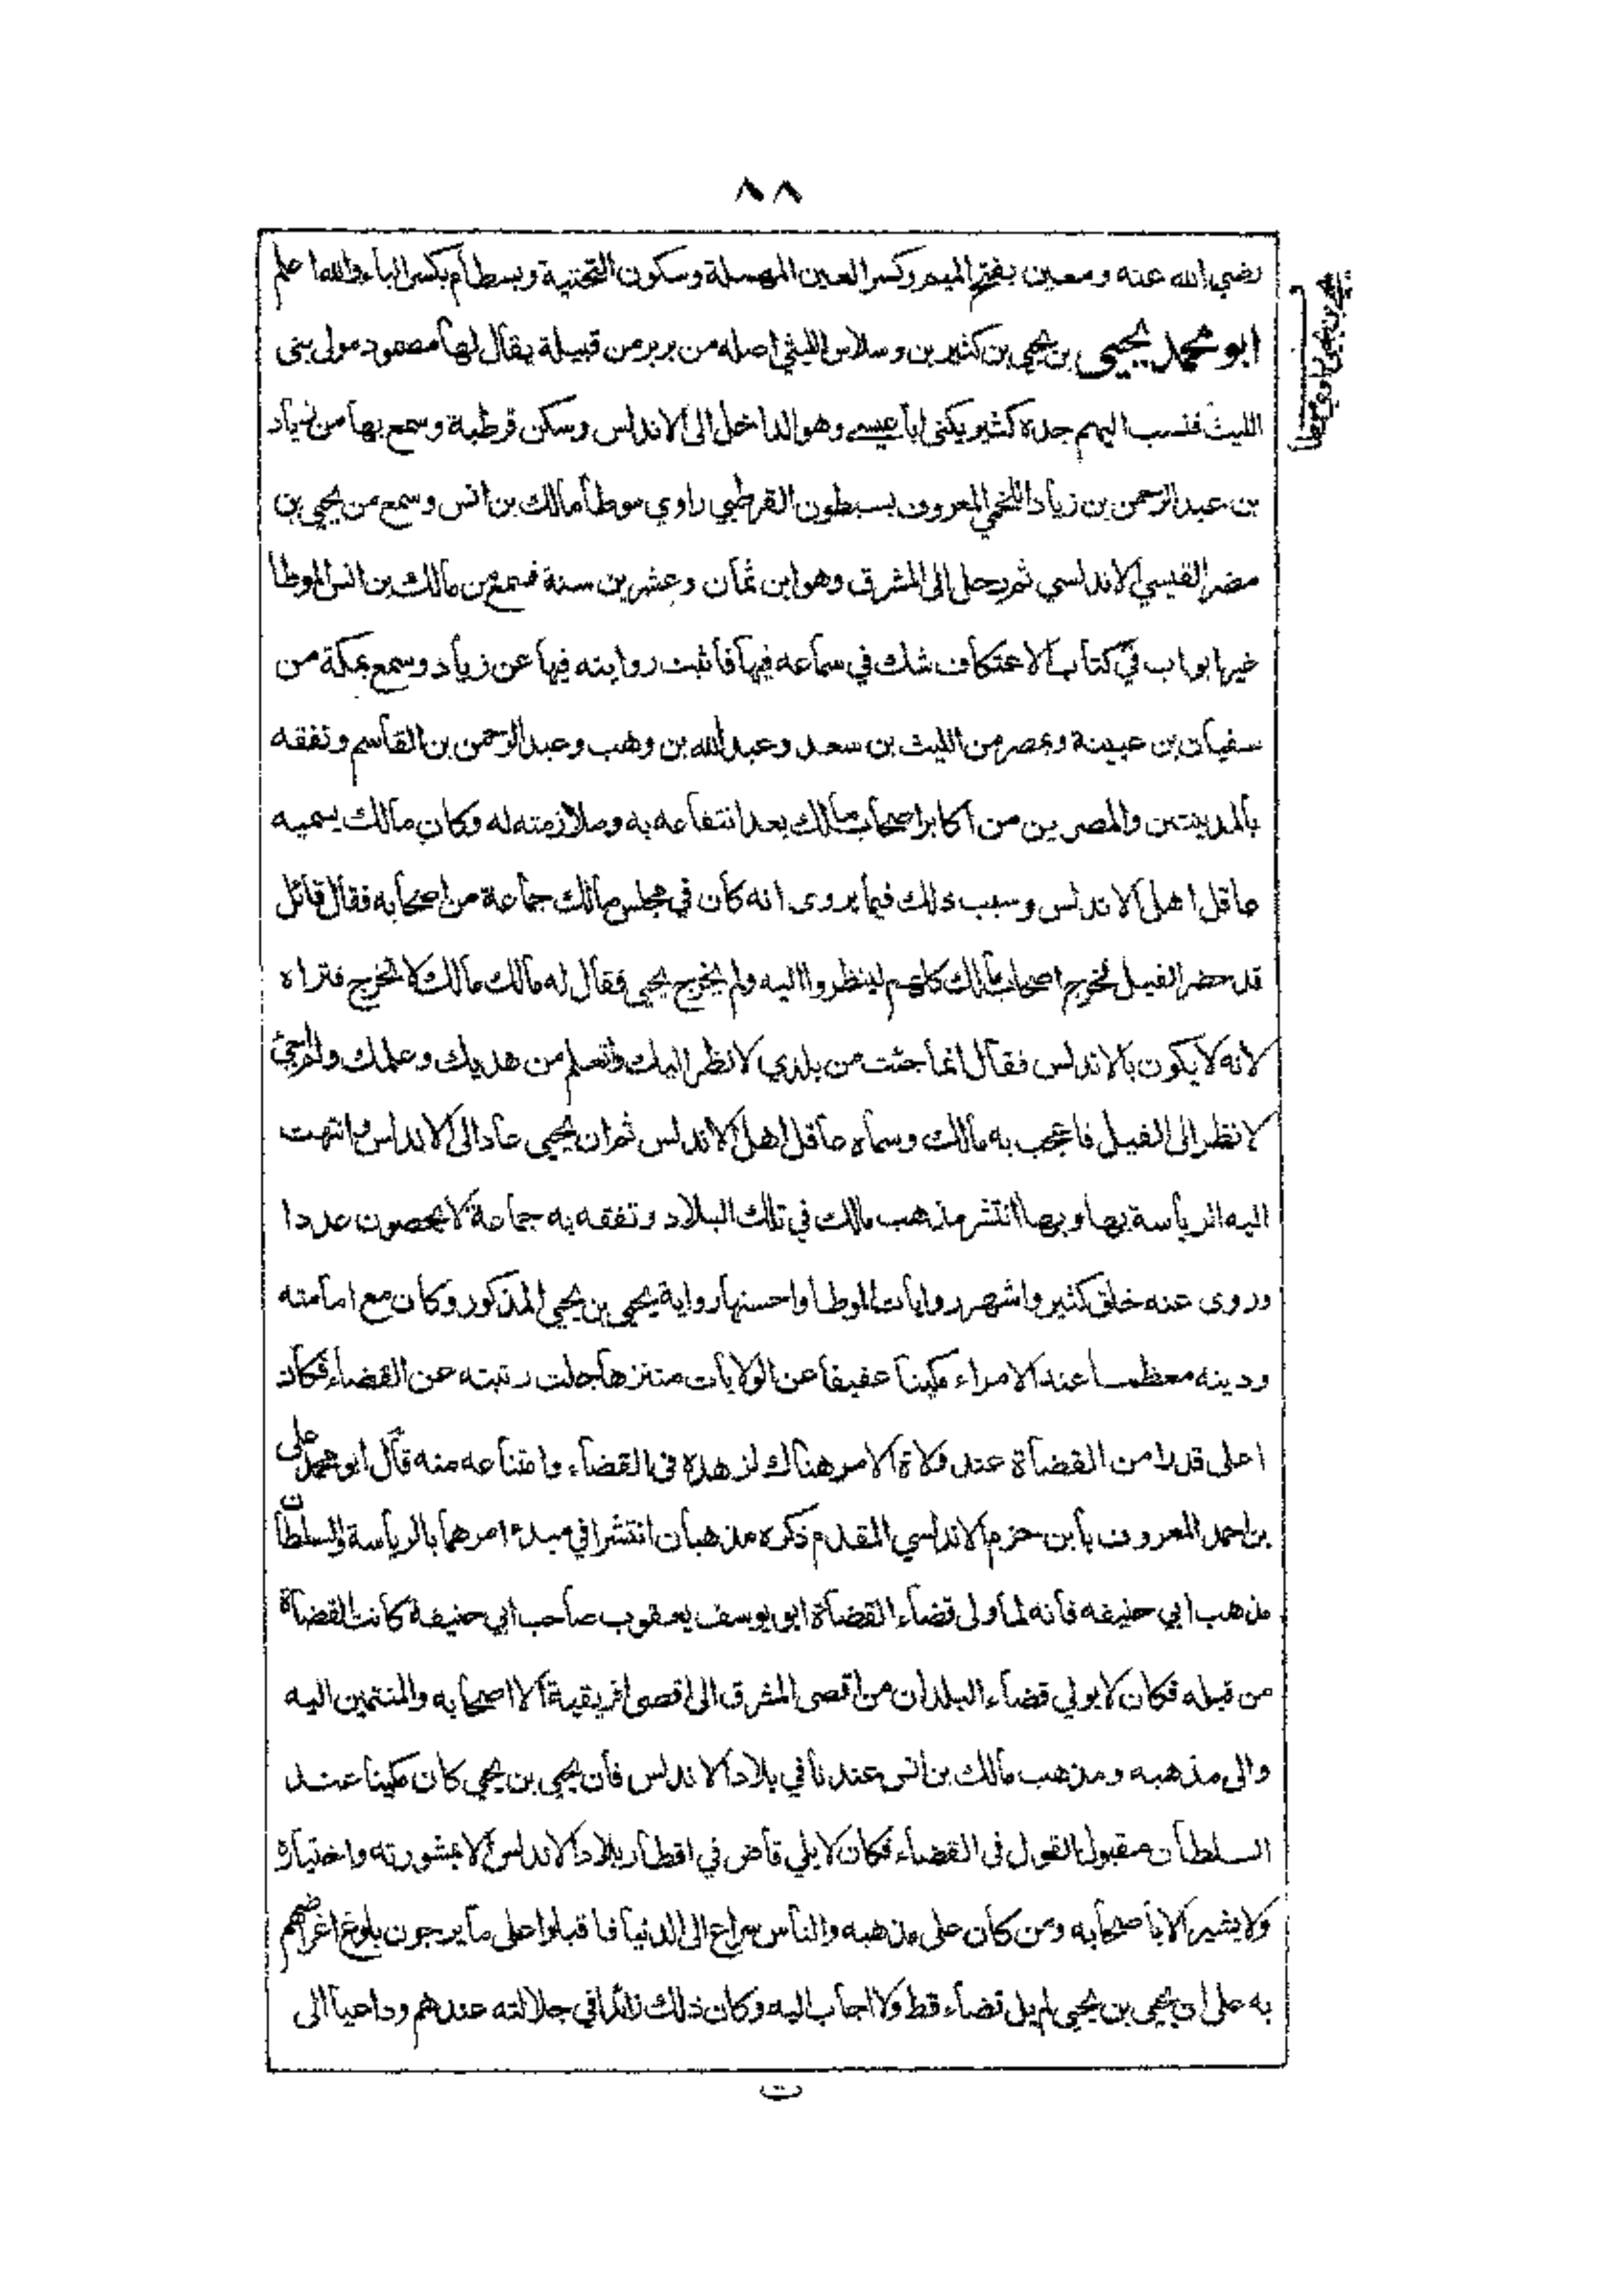 ٨٨
رضي الله عنه ومعين بفتح الميم وكسر العين المهملة وسكون التحتية وبسطام بكسر الباء والله اعلم
يحيى بن يحيى راوي موطا
ابو محمد يحيى بن يحيى بن كثير بن وسلاس الليثي اصله من بربر من قبيلة يقال لها مصمود مولى بنى
الليث فنسب اليهم جده كثير يكنى ابا عيسے وهو الداخل الى الاندلس وسكن قرطبة وسمع بها من زياد
بن عبد الرحمن بن زياد اللخمي المعروف بسبطون القرطبي راوي موطأ مالك بن انس وسمع من يحيى بن
مضر القيسي الاندلسي ثم رحل الى المشرق وهو ابن ثمان وعشرين سنة فسمع من مالك بن انس الموطا
غير ابواب في كتاب الاعتكاف شك في سماعه فيها فاثبت روايته فيها عن زياد وسمع بمكة من
سفيان بن عيينة وبمصر من الليث بن سعد وعبد الله بن وهب وعبد الرحمن بن القاسم وتفقه
بالمدينتين والمصريين من اكابر اصحاب مالك بعد انتفاعه به وملازمته له وكان مالك يسميه
عاقل اهل الاندلس وسبب ذلك فيما يروى انه كان في مجلس مالك جماعة من اصحابه فقال قائل
قد حضر الفيل فخرج اصحاب مالك كلهم لينظروا اليه ولم يخرج يحيى فقال له مالك مالك لا تخرج فتراه
لانه لا يكون بالاندلس فقال انما جئت من بلدي لانظر اليك واتعلم من هديك وعلمك ولم اجئ
لانظر الى الفيل فاعجب به مالك وسماه عاقل اهل الاندلس ثم ان يحيى عاد الى الاندلس وانتهت
اليه الرياسة بها وبها انتشر مذهب مالك في تلك البلاد وتفقه به جماعة لا يحصون عددا
وروى عنه خلق كثير واشهر روايات الموطا واحسنها رواية يحيى بن يحيى المذكور وكان مع امامته
ودينه معظما عند الامراء مكينا عفيفا عن الولايات متنزها جلت رتبته عن القضاء فكان
اعلى قدرا من القضاة عند ولاة الامر هناك لزهده في القضاء وامتناعه منه قال ابو محمد على
بن احمد المعروف بابن حزم الاندلسي المقدم ذكره مذهبان انتشرا في مبدء امرهما بالرياسة والسلطان
مذهب ابي حنيفه فانه لما ولى قضاء القضاة ابو يوسف يعقوب صاحب ابي حنيفة كانت القضاة
من قبله فكان لا يولي قضاء البلدان من اقصى المشرق الى اقصى افريقية الا اصحابه والمنتمين اليه
والى مذهبه ومذهب مالك بن انس عندنا في بلاد الاندلس فان يحيى بن يحيى كان مكينا عند
السلطان مقبول القول فى القضاء فكان لا يلي قاض في اقطار بلاد الاندلس الا بمشورته واختياره
ولا يشير الا باصحابه ومن كان على مذهبه والناس سراع الى الدنيا فاقبلوا على ما يرجون بلوغ اغراضهم
به على ان يحيى بن يحيى لم يل قضاء قط ولا اجاب اليه وكان ذلك زائدا في جلالته عندهم وداعيا الى
ت